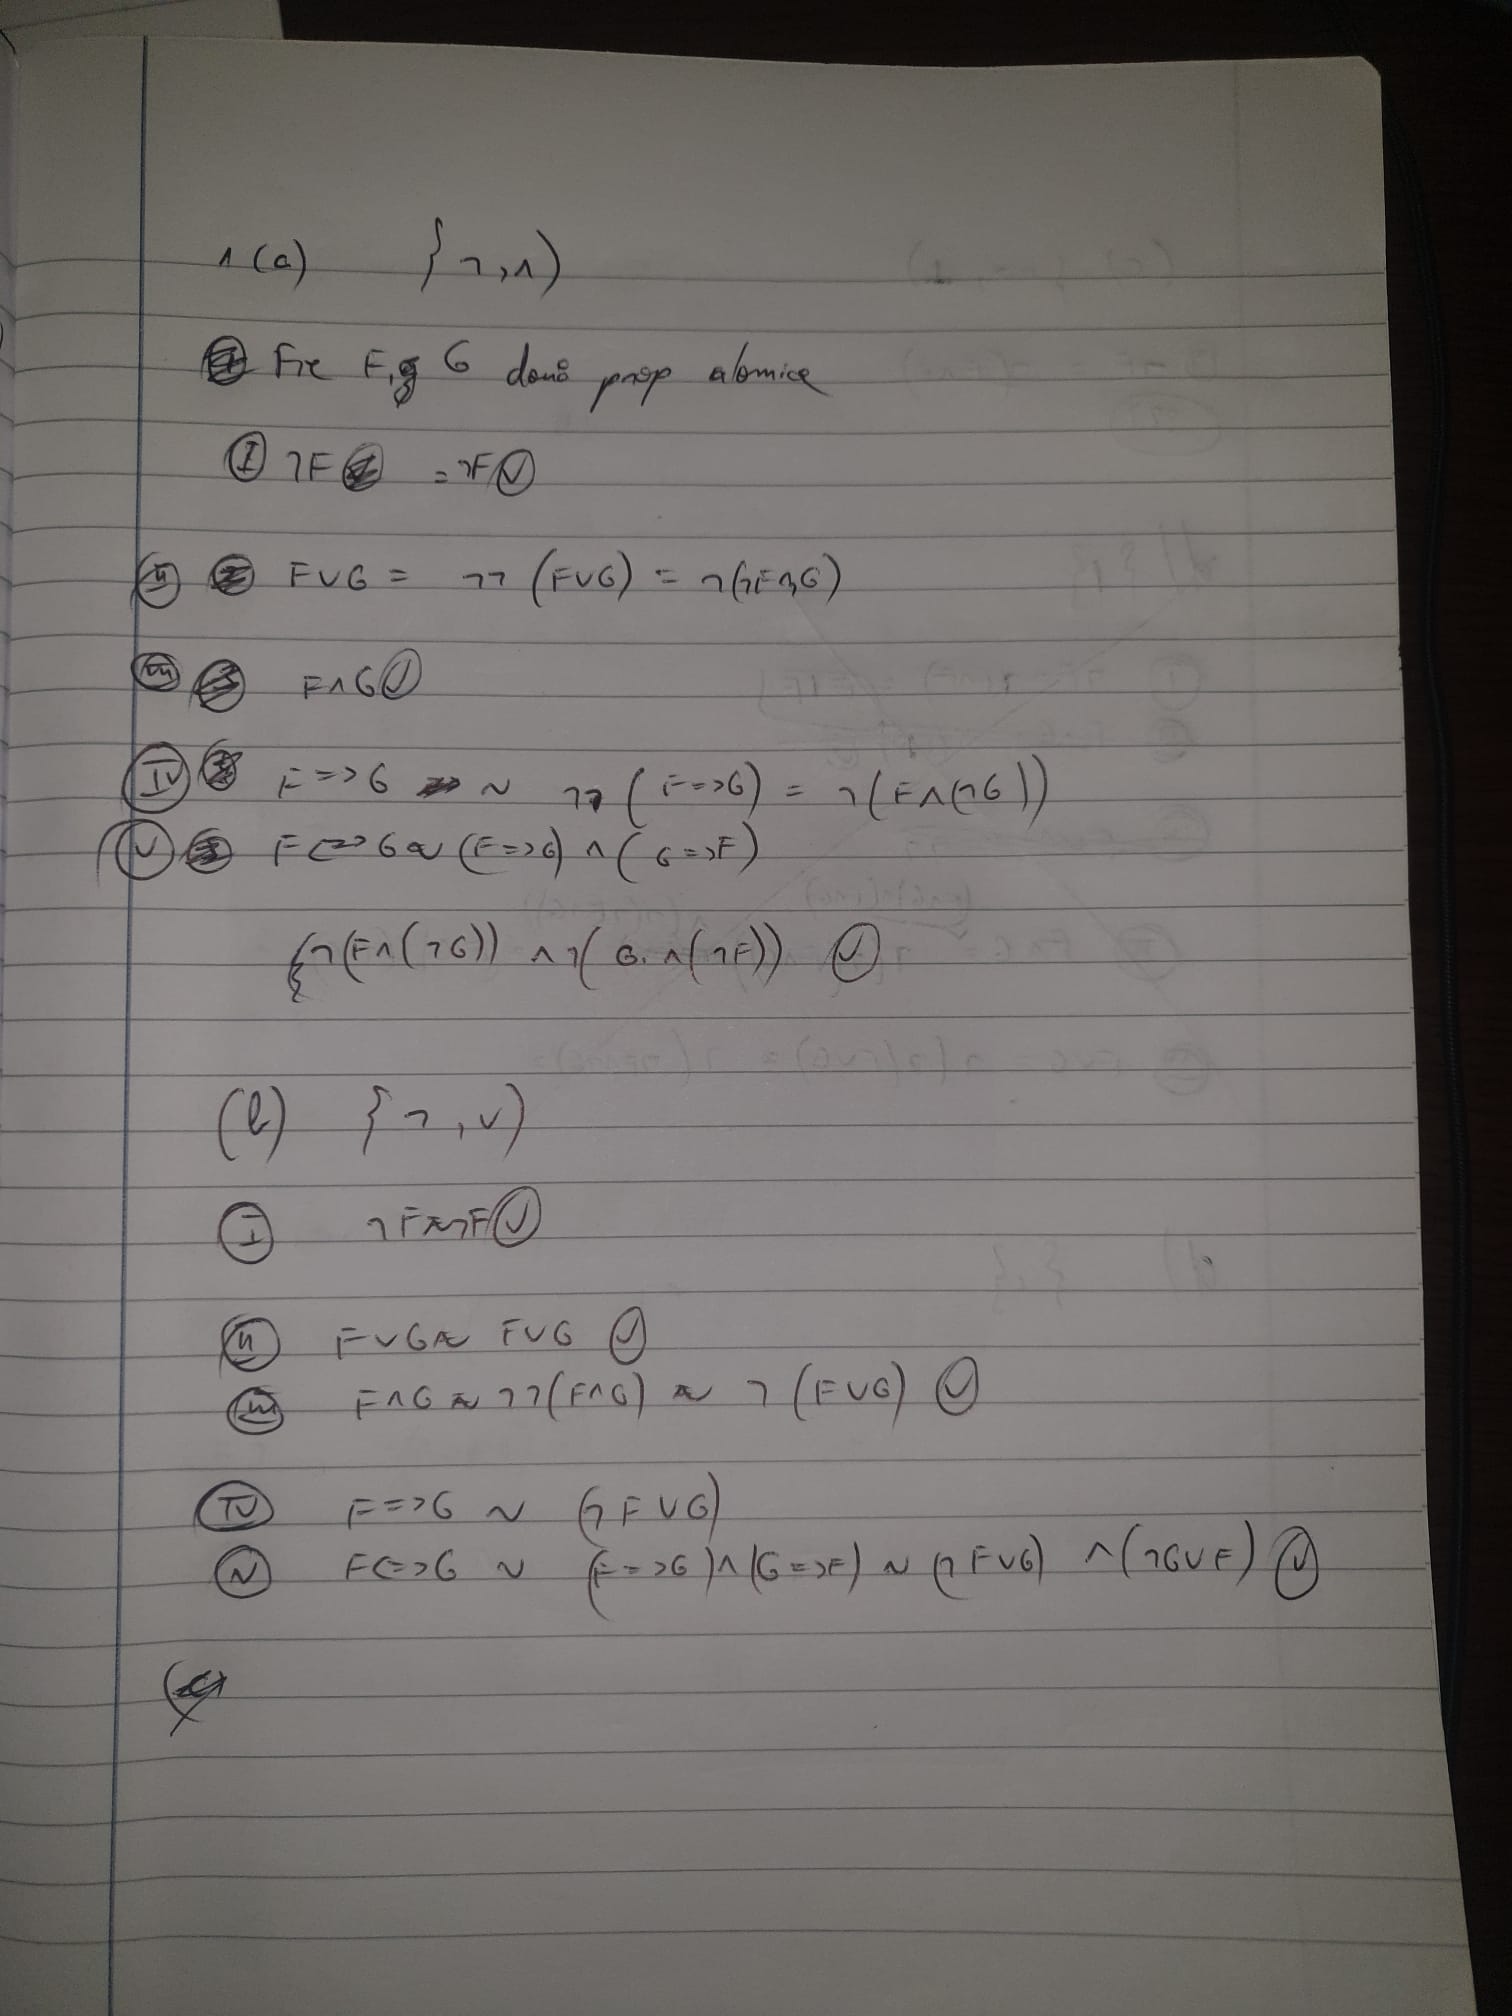 1 (a) {¬,∧)
Fie F, G două prop atomice
(I) ¬F = ¬F ✓
(II) F∨G = ¬¬ (F∨G) = ¬(¬F∧¬G)
(III) F∧G ✓
(IV) F=>G ~ ¬¬ (F=>G) = ¬(F∧(¬G))
(V) F<=>G ~ (F=>G) ∧ (G=>F)
¬(F∧(¬G)) ∧ ¬( G ∧(¬F)) ✓
(b) {¬,∨)
(I) ¬F ~ ¬F ✓
(II) F∨G ~ F∨G ✓
(III) F∧G ~ ¬¬(F∧G) ~ ¬ (F∨G) ✓
(IV) F=>G ~ (¬F∨G)
(V) F<=>G ~ (F=>G)∧(G=>F) ~ (¬F∨G) ∧(¬G∨F) ✓